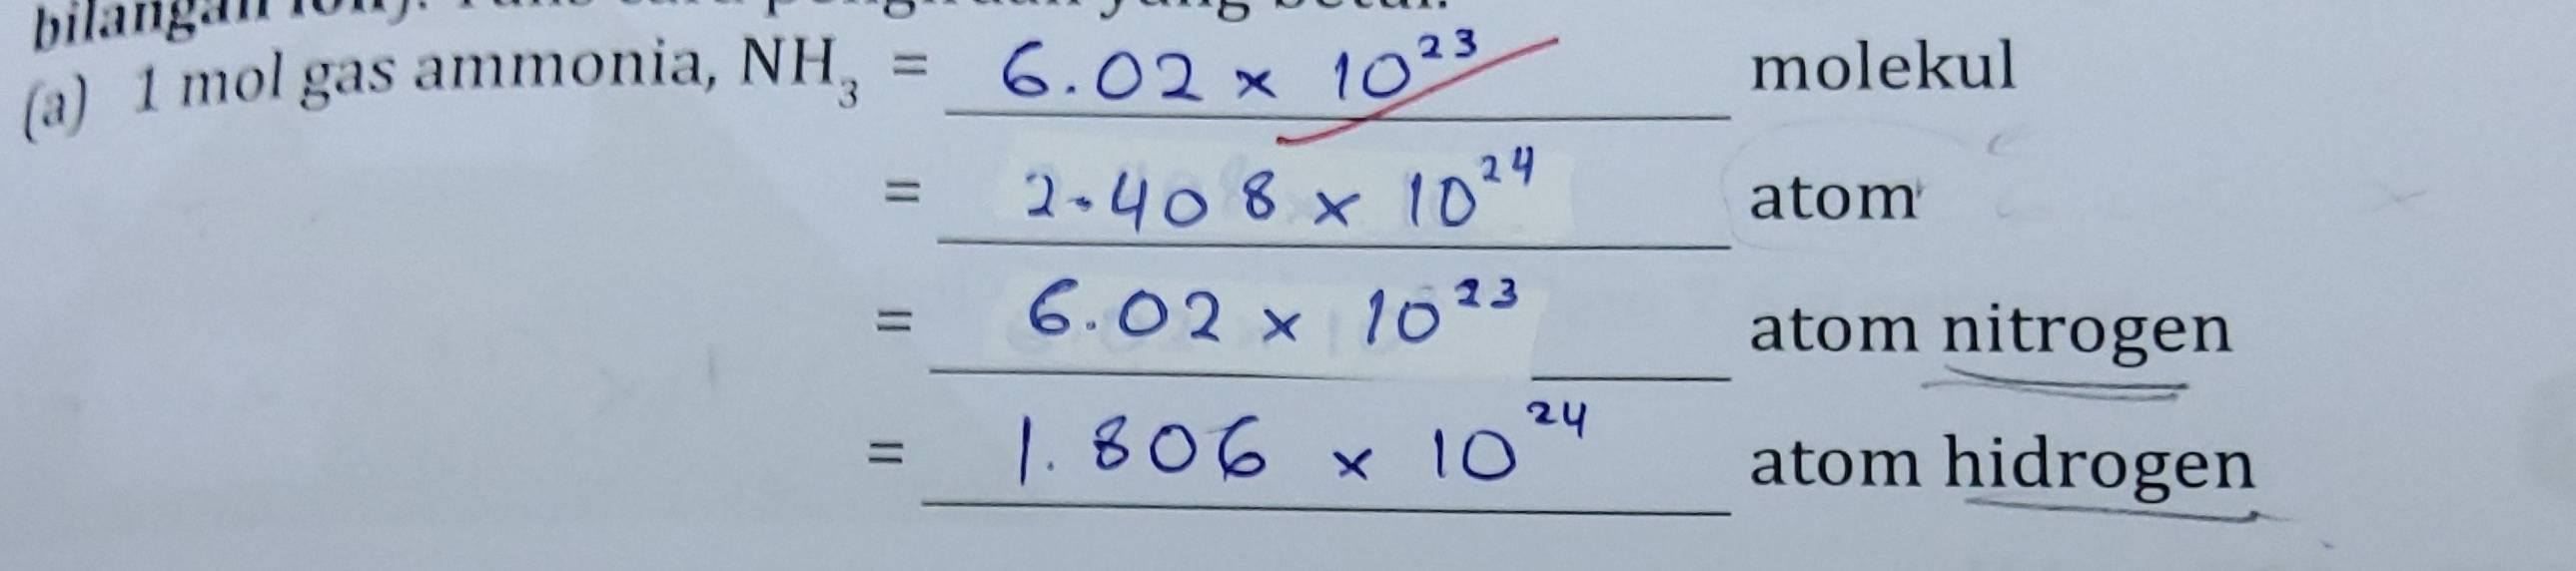 (a) 1 mol gas ammonia, NH₃ = 6.02 × 10²³ molekul
= 2.408 × 10²⁴ atom
= 6.02 × 10²³ atom nitrogen
= 1.806 × 10²⁴ atom hidrogen